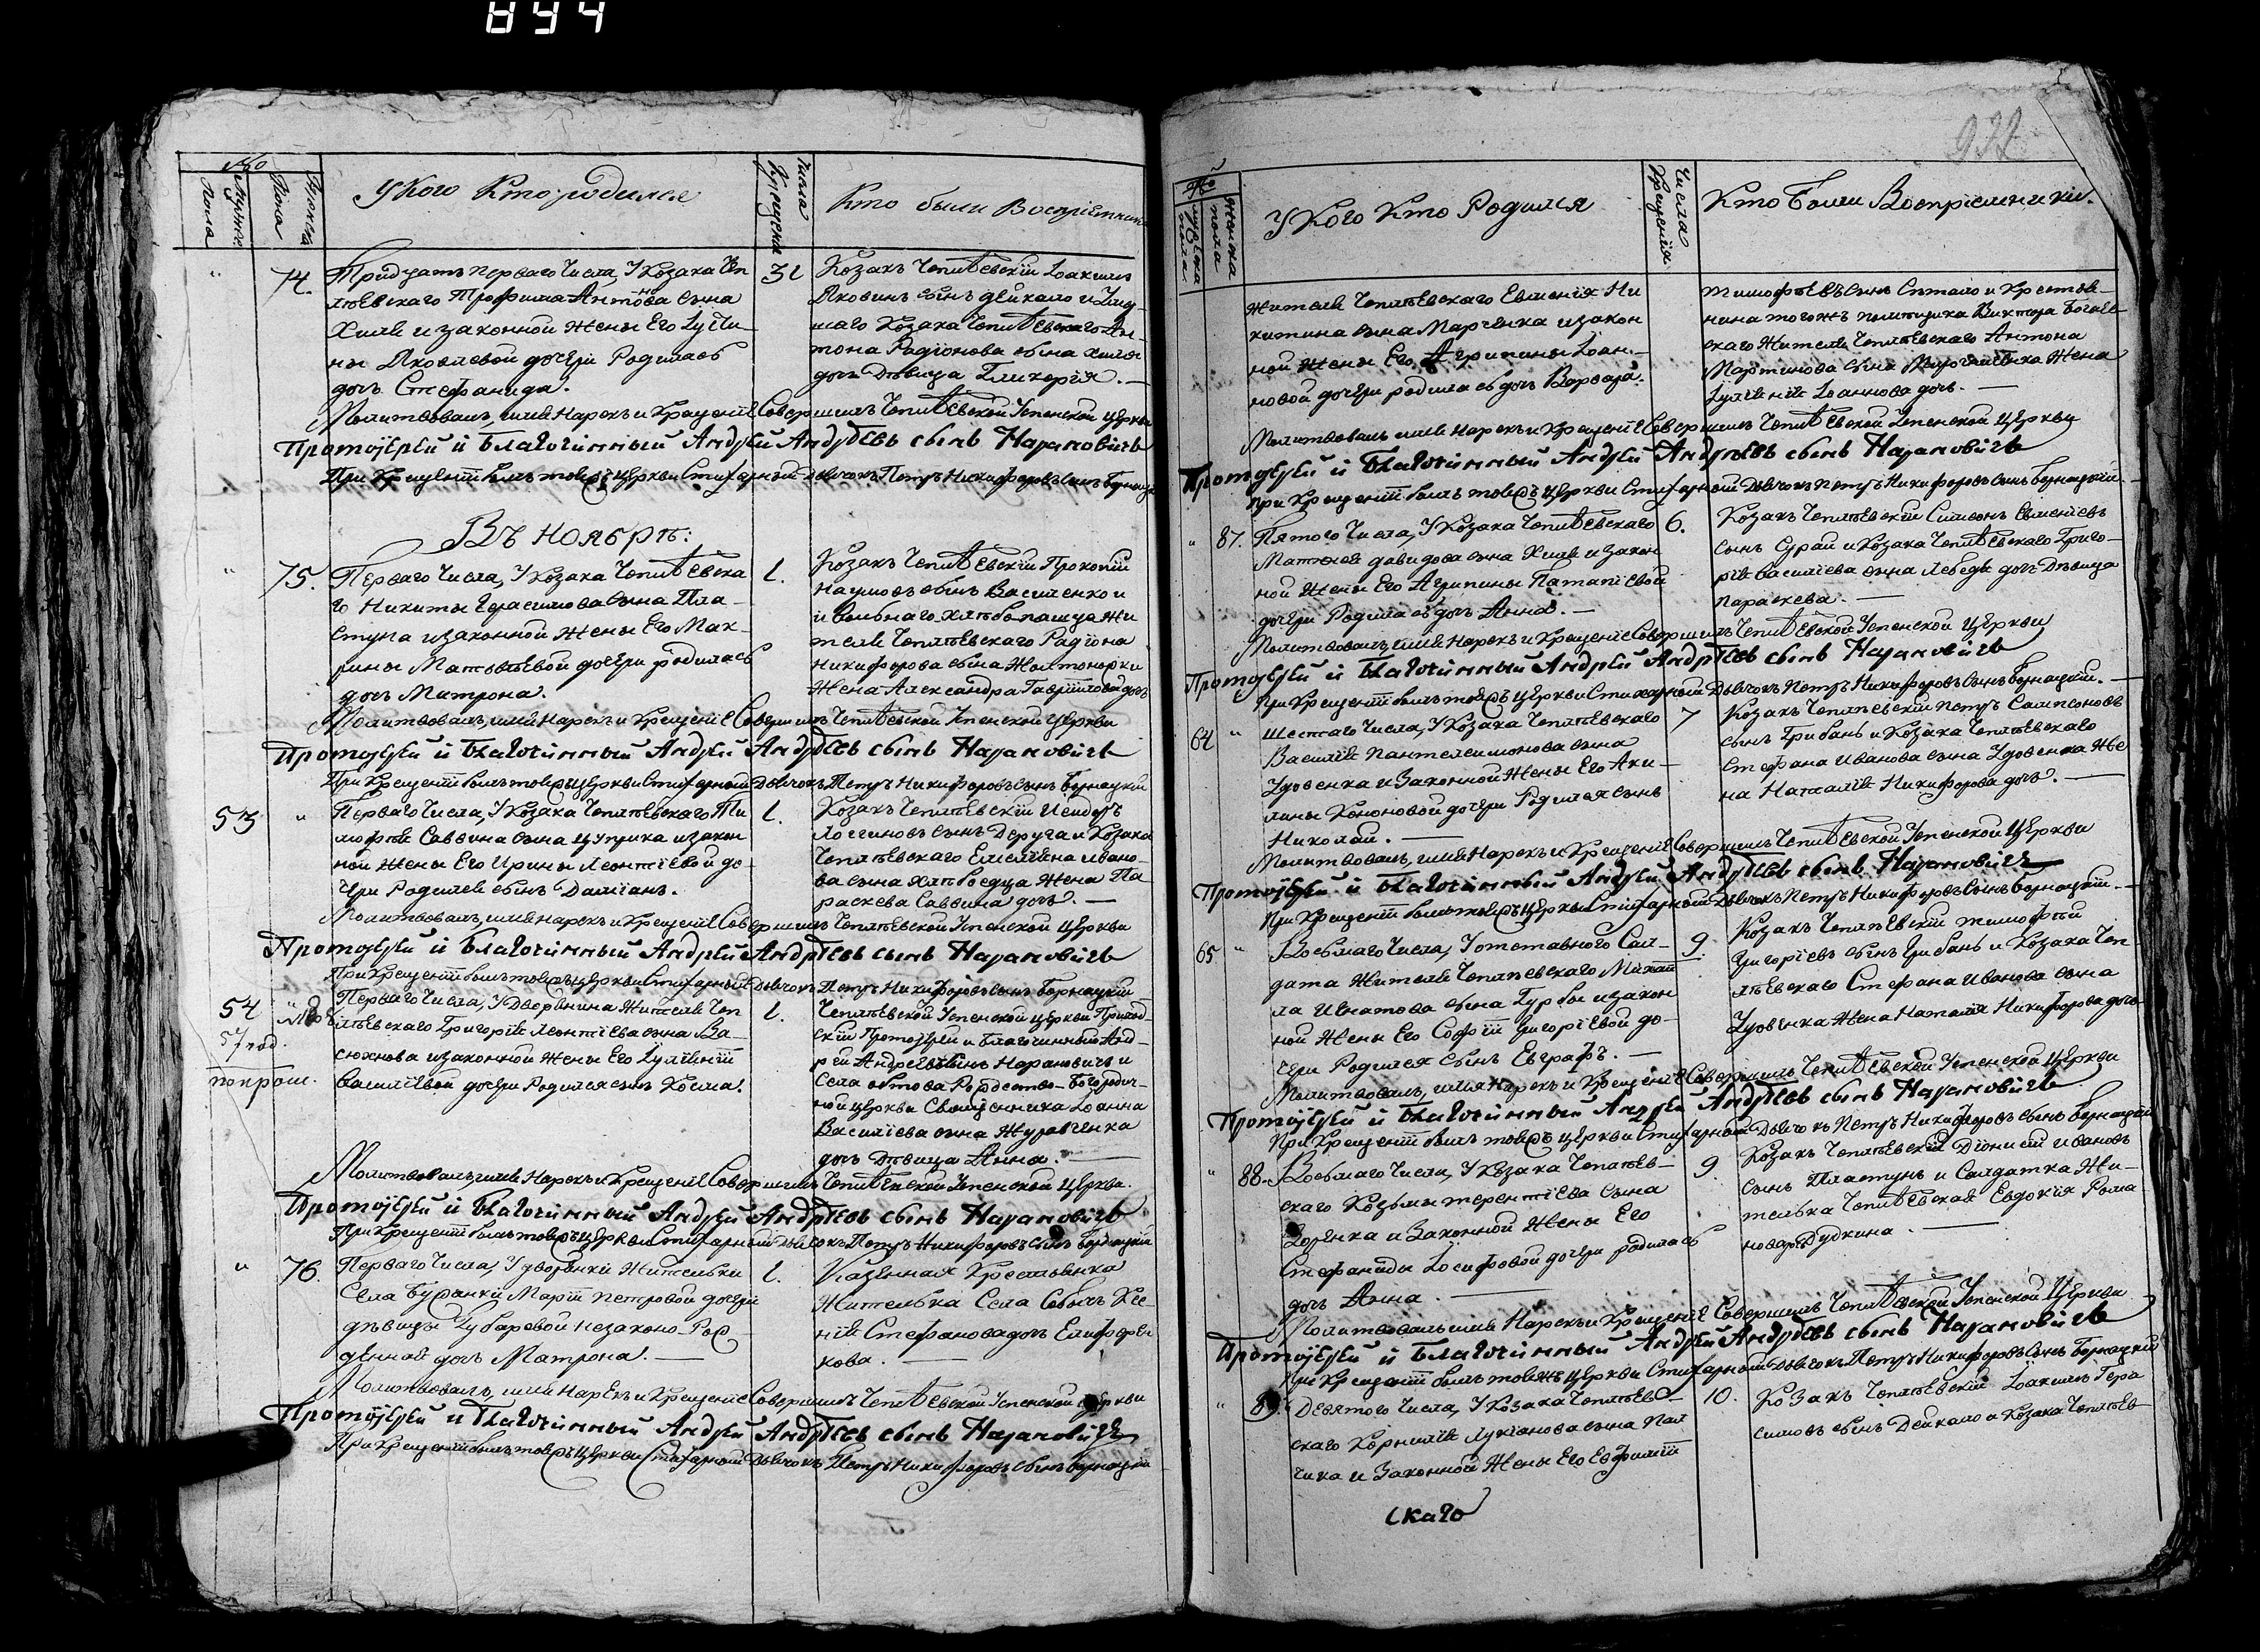 894
No
Мужска Пола
Женска Пола
У Кого Кто родился
Числа Крещения
Кто были Воспріемники
" 74. Тридцать перваго Числа, У Козака Чеп
лѣевскаго Трофима Антонова сына
Хиля и законной жены Его Іусти-
ны Яковлевой дочери Родилась
дочь Стефанида.
31
Козакъ Чеплѣевскій Іоакимъ
Яковинъ сынъ Дейкало и
шаго Козака Чеплѣевскаго Ан-
тона Радіонова сына Хиля
дочь Дѣвица Гликерія. —
Молитвовалъ, имя Нарекъ и Крещеніе Совершилъ Чеплѣевской Успенской Церкви
Протоіерей и Благочинный Андрей Андрѣевъ сынъ Нарановичь
При Крещеніи былъ тоеяжъ Церкви Стихарный Дьячокъ Петръ Никифоровъ сынъ Борнацкій
Въ Ноябрѣ:
" 75. Перваго Числа, У Козака Чеплѣевска
го Никиты Герасимова сына Пла-
стуна и законной жены Его Мак-
рины Матвѣевой дочери родилась
дочь Матрона.
1.
Козакъ Чеплѣевскій Прокопій
Наумовъ сынъ Василенко и
и вольнаго хлѣбопашца жи
теля Чеплѣевскаго Радіона
Никифорова сына Жолтоножки
Жена Александра Гавріилова дочь
Молитвовалъ, имя Нарекъ и Крещеніе Совершилъ Чеплѣевской Успенской Церкви
Протоіерей и Благочинный Андрей Андрѣевъ сынъ Нарановичь
При Крещеніи былъ тоеяжъ Церкви Стихарный Дьячокъ Петръ Никифоровъ сынъ Борнацкій
53 " Перваго Числа, У Козака Чеплѣевскаго Ти
мофѣя Саввина сына Цуприка и закон
ной жены Его Ирины Леонтіевой до-
чери Родился сынъ Даміанъ.
1.
Козакъ Чеплѣевскій Исидоръ
Логгиновъ сынъ Деруга и Козака
Чеплѣевскаго Емеліяна Ивано-
ва сына Хлѣбоедца Жена Па
раскева Саввина дочь. —
Молитвовалъ, имя нарекъ и Крещеніе Совершилъ Чеплѣевской Успенской Церкви
Протоіерей и Благочинный Андрей Андрѣевъ сынъ Нарановичь
При Крещеніи былъ тоеяжъ Церкви Стихарный Дьячокъ Петръ Никифоровъ сынъ Борнацкій
54 " Перваго Числа, У Дворянина Жителя Чеп
лѣевскаго Григорія Леонтіева сына Ва-
сюхнова и законной жены Его Іуліяніи
Василіевой дочери Родился сынъ Косма.
1.
Чеплѣевской Успенской церкви Приход-
скій Протоіерей и Благочинный Анд-
рей Андреевъ сынъ Нарановичь и
Села Рождество-Богородич-
ной церкви Священника Іоанна
Василіева сына Журавченка
дочь Дѣвица Анна. —
Молитвовалъ имя Нарекъ и Крещеніе Совершилъ Чеплѣевской Успенской Церкви.
Протоіерей и Благочинный Андрей Андрѣевъ сынъ Нарановичь
При Крещеніи былъ тоеяжъ Церкви Стихарный Дьячокъ Петръ Никифоровъ сынъ Борнацкій
" 76. Перваго Числа, У дворянки Жительки
Села Буранки Маріи Петровой дочери
дѣвицы Чубаревой незаконо-Рож
денной дочь Матрона. —
1.
Казенная Крестьянка
Жителька Села Собычь Ксе-
нія Стефанова дочь Елифорен
кова. —
Молитвовалъ, имя Нарекъ и Крещеніе Совершилъ Чеплѣевской Успенской Церкви
Протоіерей и Благочинный Андрей Андрѣевъ сынъ Нарановичь
При Крещеніи былъ тоеяжъ Церкви Стихарный Дьячокъ Петръ Никифоровъ сынъ Борнацкій
932
No
мужска пола
Женска пола
У Кого Кто Родился
Числа Крещенія
Кто Были Воспріемники.
Жителя Чеплѣевскаго Евменія Ни
китина сына Марченка и закон
ной жены Его Агрипины Іоан-
новой дочери родилась дочь Варвара.
тимофѣевъ сынъ Сѣтало и Крестья-
нина тогожъ помещика Виктора Богаев
скаго Жителя Чеплѣевскаго Антона
Мартинова сына Жена
Іуліянія Іоаннова дочь. —
Молитвовалъ имя Нарекъ и Крещеніе Совершилъ Чеплѣевской Успенской Церкви
Протоіерей и Благочинный Андрей Андрѣевъ сынъ Нарановичь
При Крещеніи былъ тоеяжъ Церкви Стихарный Дьячокъ Петръ Никифоровъ сынъ Борнацкій
" 87. Пятого Числа, У Козака Чеплѣевскаго
Матфея Давидова сына Хиля и закон
ной жены Его Агрипины Патапіевой
дочери Родилась дочь Анна. —
6.
Козакъ Чеплѣевскій Симеонъ Евменіевъ
сынъ Сурай и Козака Чеплѣевскаго Григо-
рія Василіева сына Лебедя дочь Дѣвица
Параскева. —
Молитвовалъ, имя Нарекъ и Крещеніе Совершилъ Чеплѣевской Успенской Церкви
Протоіерей и Благочинный Андрей Андрѣевъ сынъ Нарановичь
При Крещеніи былъ тоеяжъ Церкви Стихарный Дьячокъ Петръ Никифоровъ сынъ Борнацкій. —
64 " Шестаго Числа, У Козака Чеплѣевскаго
Василія Пантелеимонова сына
Удовенка и Законной Жены Его Аки-
лины Кононовой дочери Родился сынъ
Николай. —
7
Козакъ Чеплѣевскій Петръ Сампсоновъ
сынъ Грибанъ и Козака Чеплѣевскаго
Стефана Иванова сына Удовенка Же
на Наталія Никифорова дочь. —
Молитвовалъ, имя Нарекъ и Крещеніе Совершилъ Чеплѣевской Успенской Церкви
Протоіерей и Благочинный Андрей Андрѣевъ сынъ Нарановичь
При Крещеніи былъ тоеяжъ Церкви Стихарный Дьячокъ Петръ Никифоровъ сынъ Борнацкій. —
65 " Восьмаго Числа, У отставного Сал-
дата Жителя Чеплѣевскаго Михаи
ла Игнатова сына Гурбы и закон
ной Жены Его Софіи Григоріевой до-
чери Родился сынъ Евграфъ. —
9.
Козакъ Чеплѣевскій тимофѣй
Григоріевъ сынъ Грибанъ и Козака Чеп-
лѣевскаго Стефана Иванова сына
Удовенка Жена Наталія Никифорова дочь
Молитвовалъ, имя Нарекъ и Крещеніе Совершилъ Чеплѣевской Успенской Церкви
Протоіерей и Благочинный Андрей Андрѣевъ сынъ Нарановичь
При Крещеніи былъ тоеяжъ Церкви Стихарный Дьячокъ Петръ Никифоровъ сынъ Борнацкій
" 88. Восьмаго Числа, У Козака Чеплѣев-
скаго Козьмы терентіева сына
Зоренка и Законной Жены Его
Стефаниды Іосифовой дочери родилась
дочь Анна. —
9.
Козакъ Чеплѣевскій Діонисій Ивановъ
сынъ Пластунъ и Салдатка Жи-
телька Чеплѣевская Евдокія Рома
нова дочь Дудкина. —
Молитвовалъ имя Нарекъ и Крещеніе Совершилъ Чеплѣевской Успенской Церкви
Протоіерей и Благочинный Андрей Андрѣевъ сынъ Нарановичь
При Крещеніи былъ тоеяжъ Церкви Стихарный Дьячокъ Петръ Никифоровъ сынъ Борнацкій
" 89. Девятого Числа, У Козака Чеплѣев-
скаго Корнилія Лукіанова сына Пал
чика и Законной Жены Его Евфиміи
10.
Козакъ Чеплѣевскій Іоакимъ Гера
симовъ сынъ Дейкало и Козака Чеплѣев
скаго